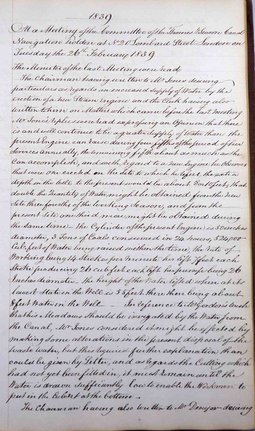 1839
At a Meeting of the Committee of the Thames & Severn Canal
Navigation holden at No 2 Lombard Street London on
Tuesday the 26th February 1839
The Minutes of the last Meeting were read
The Chairman having written to Mr Jones desiring
particulars as regards an increased supply of Water by the
erection of a new Steam Engine and the Clerk having also
written to him on Matters which came before the last Meeting
Mr Jones's reply
an Opinion that there
is and will continue to be a greater supply of Water than the
present Engine can raise during four fifths of the period of five
the remaining fifth
can accomplish, and with regard to a new Engine he observes
that were one erected on the site to which he refers, the extra
depth in the Well to the present would be about
double the quantity of Water might be obtained from the new
site then four fifths of the working Season, and from the
present site one third more might be obtained during
the same term. The Cylinder of the present engine is 50 inches
diameter, 3 Tons of Coals consumed in 24 hours,
cubic feet of Water being raised within the time, the rate of
Working being 10 Strokes per Minute, his lift 8 feet each
Stroke producing 26 cubic feet each lift, the pump being 26
inches diameter. The height of the Water lifted when at its
lowest state in the Well, 58 feet, there then being about
feet Water in the Well. In reference to Mr
that his Meadows should be irrigated by the Water from
the Canal, Mr Jones considered it might be effected by
making some alterations in the present disposal of the
waste water, but this required further explanation than
could be given by Letter, and as regards the Cutting which
had not yet been filled in, it must remain until the
Water is drawn sufficiently low to enable the Workmen to
put in the Culvert at the bottom.
The Chairman having also written to Mr Denyer desiring